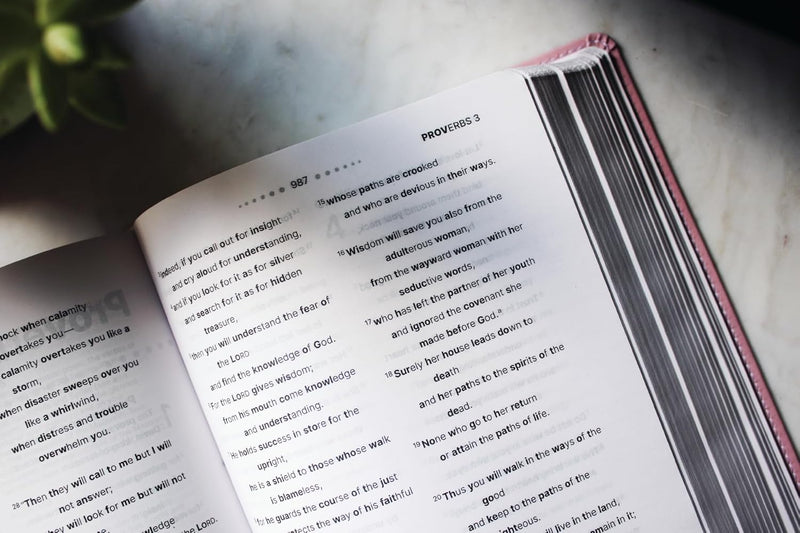 Prov
mock when calamity
overtakes you—
calamity overtakes you like a
storm,
when disaster sweeps over you
like a whirlwind,
when distress and trouble
overwhelm you.
28 “Then they will call to me but I will
not answer;
they will look for me but will not
the LORD.
987
PROVERBS 3
3 indeed, if you call out for insight
and cry aloud for understanding,
4 and if you look for it as for silver
and search for it as for hidden
treasure,
5 then you will understand the fear of
the LORD
and find the knowledge of God.
6 For the LORD gives wisdom;
from his mouth come knowledge
and understanding.
7 He holds success in store for the
upright,
he is a shield to those whose walk
is blameless,
8 for he guards the course of the just
protects the way of his faithful
15 whose paths are crooked
and who are devious in their ways.
16 Wisdom will save you also from the
adulterous woman,
from the wayward woman with her
seductive words,
17 who has left the partner of her youth
and ignored the covenant she
made before God.a
18 Surely her house leads down to
death
and her paths to the spirits of the
dead.
19 None who go to her return
or attain the paths of life.
20 Thus you will walk in the ways of the
good
and keep to the paths of the
righteous.
will live in the land,
remain in it;